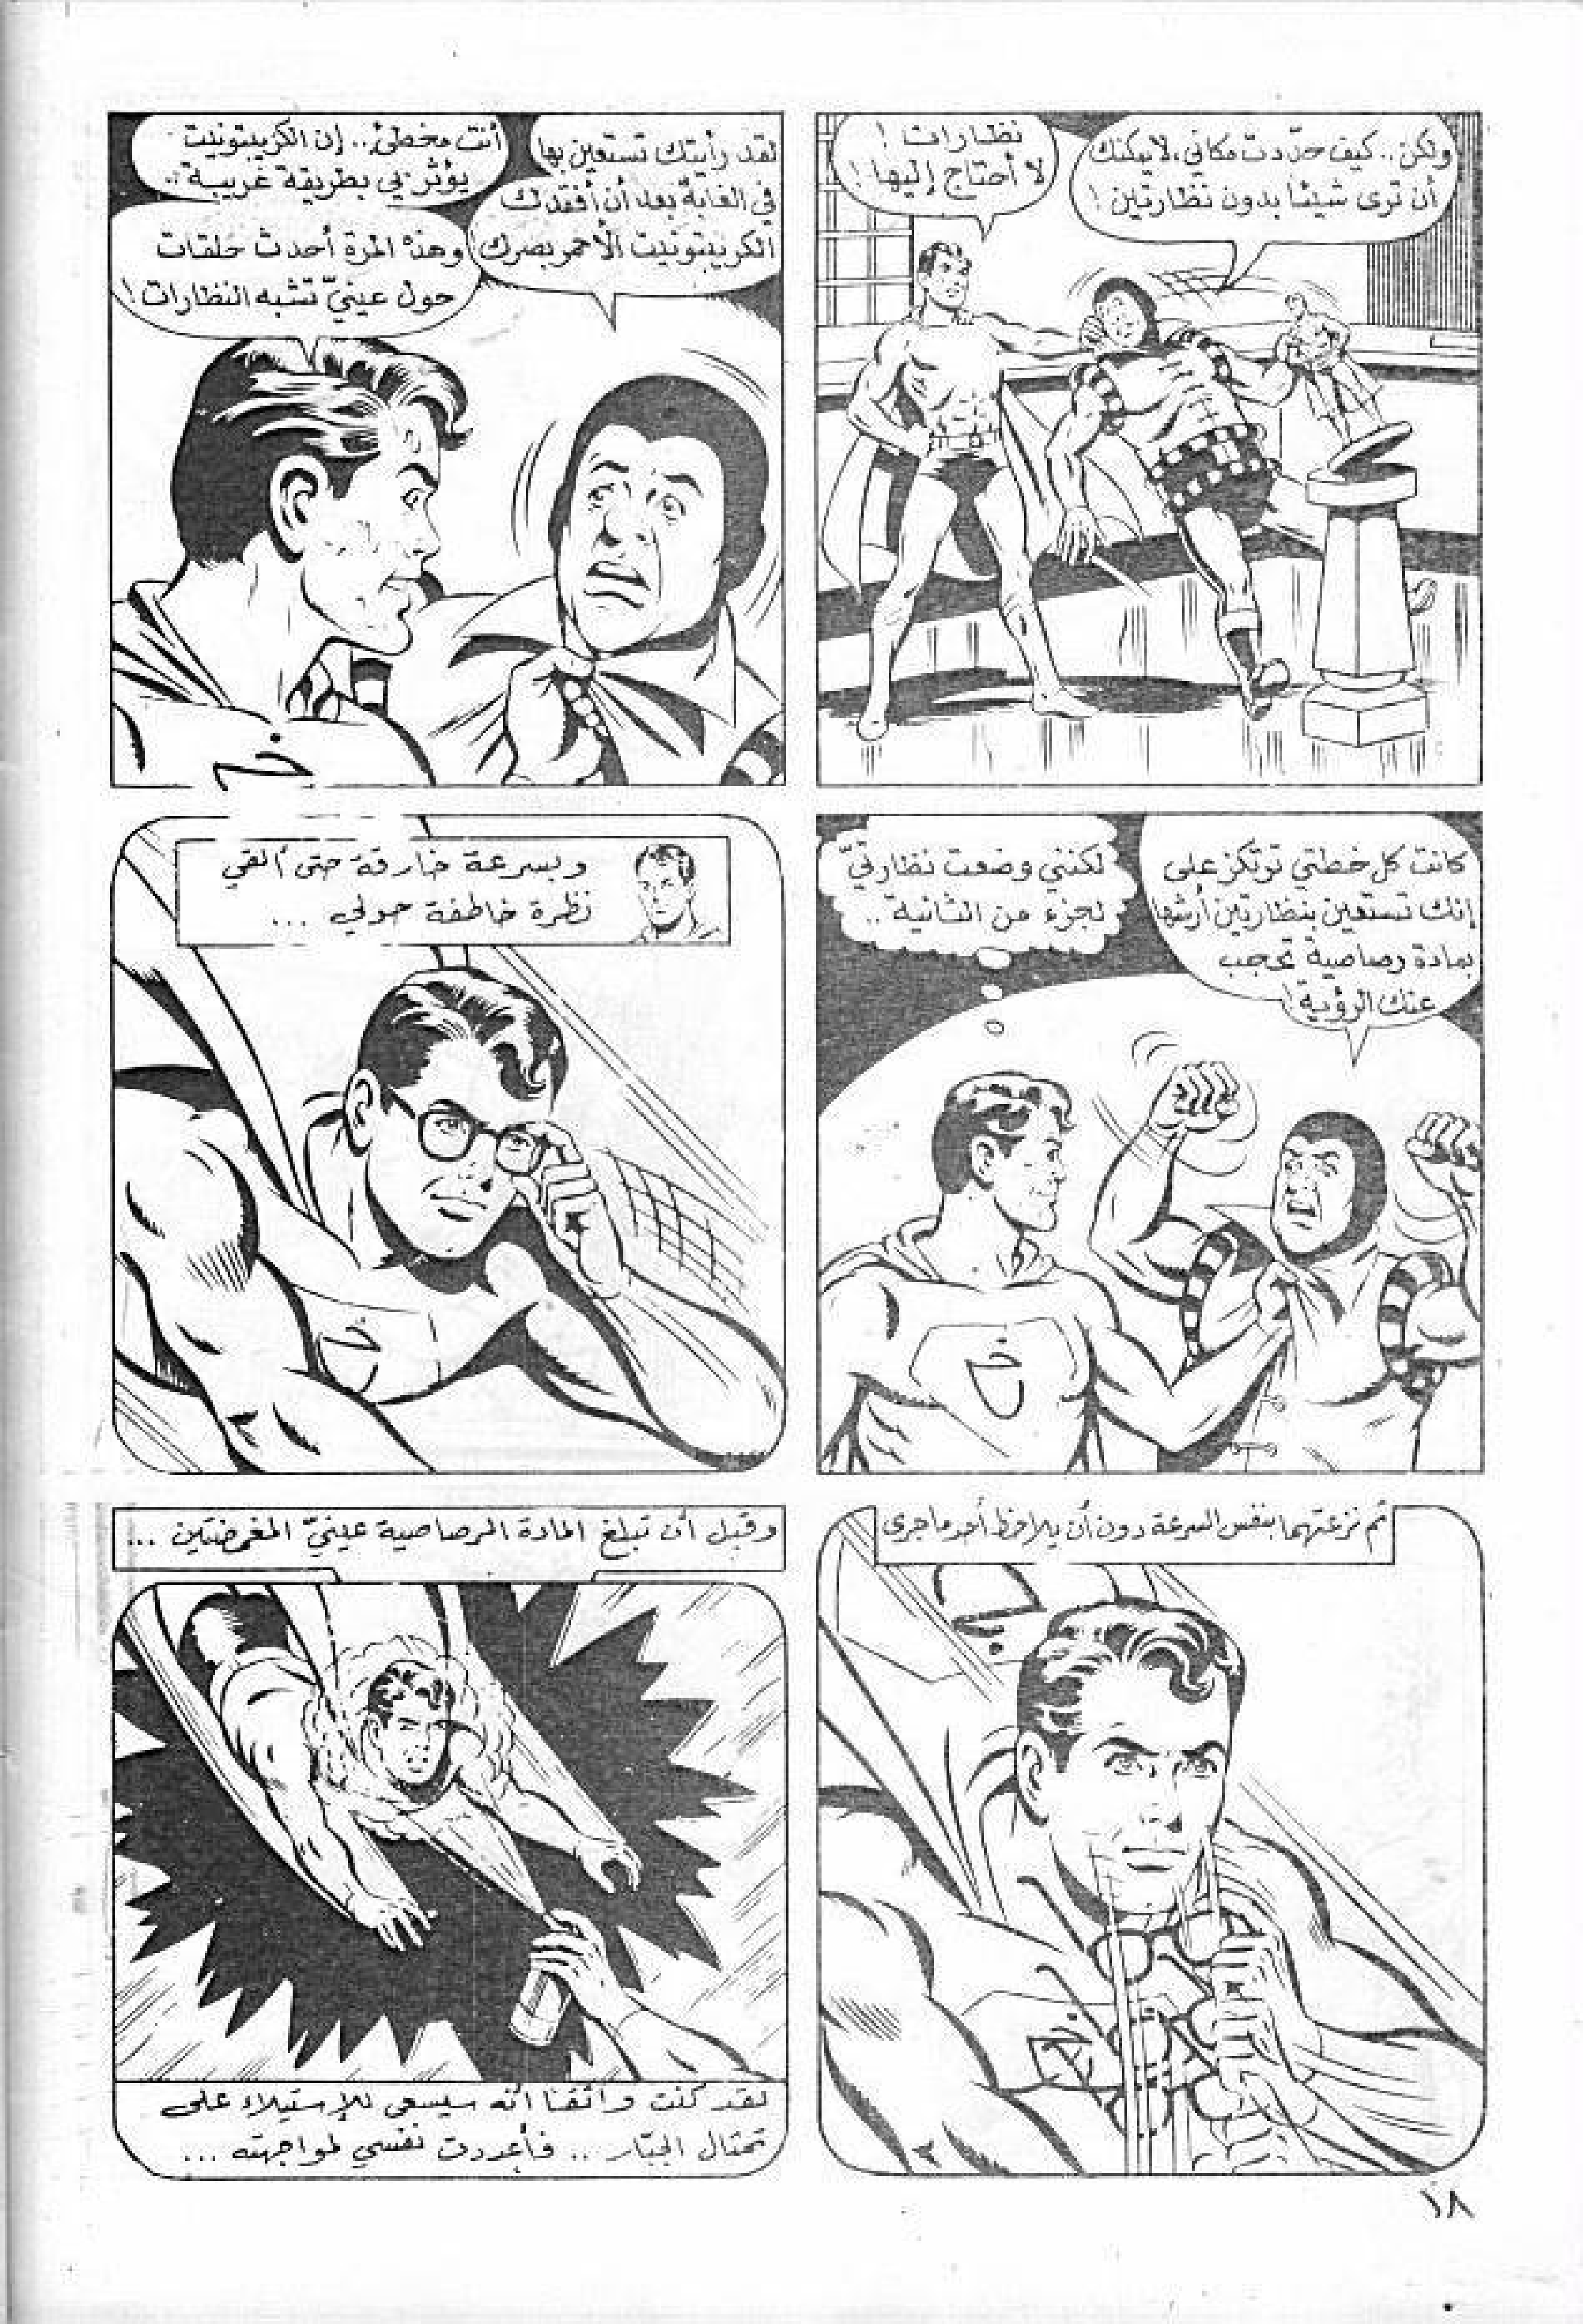 ولكن.. كيف حدّدت مكاني، لا يمكنك
أن ترى شيئاً بدون نظارتين!
نظارات!
لا أحتاج إليها!
لقد رأيتك تستعين بها
في الغابة بعد أن أفقدك
الكريبتونيت الأحمر بصرك!
أنت مخطئ.. إن الكريبتونيت
يؤثر بي بطريقة غريبة..
وهذه المرة أحدث حلقات
حول عينيّ تشبه النظارات!
كانت كل خطتي ترتكز على
إنك تستعين بنظارتين أرشها
بمادة رصاصية تحجب
عنك الرؤية!
لكنني وضعت نظارتيّ
لجزء من الثانية..
وبسرعة خارقة حتى ألقي
نظرة خاطفة حولي ...
ثم نزعتهما بنفس السرعة دون أن يلاحظ أحد ما جرى
وقبل أن تبلغ المادة الرصاصية عينيّ المغمضتين ...
لقد كنت واثقا انه سيسعى للإستيلاء على
تمثال الجبّار .. فأعددت نفسي لمواجهته ...
١٨